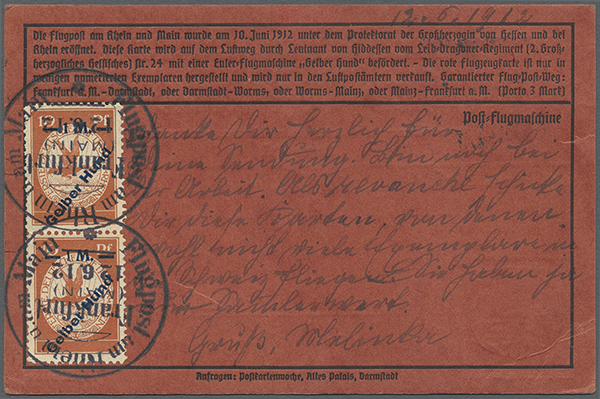 12.6.1912
Die Flugpost am Rhein und Main wurde am 10. Juni 1912 unter dem Protektorat der Großherzogin von Hessen und bei
Rhein eröffnet. Diese Karte wird auf dem Luftweg durch Leutnant von Hiddessen vom Leib-Dragoner-Regiment (2. Groß-
herzogliches Hessisches) Nr. 24 mit einer Euler-Flugmaschine „Gelber Hund“ befördert. – Die rote Flugzeugkarte ist nur in
wenigen numerierten Exemplaren hergestellt und wird nur in den Luftpostämtern verkauft. Garantierter Flug-Post-Weg:
Frankfurt a. M.–Darmstadt, oder Darmstadt–Worms, oder Worms–Mainz, oder Mainz–Frankfurt a. M. (Porto 3 Mark)
Post-Flugmaschine
Danke Dir herzlich für
Deine Sendung. Bin noch bei
der Arbeit. Als revanche schicke
Dir diese Karten, von denen
wohl nicht viele Exemplare in
Schweiz fliegen. Sie haben ja
Samlerwert.
Gruß, Melinka
1 M.
Gelber Hund
Flugpost am Rhein u. am Main
Frankfurt
(MAIN)
1 M.
Gelber Hund
Pf.
Flugpost am Rhein u. am Main
6.12
Frankfurt
(MAIN)
Anfragen: Postkartenwoche, Altes Palais, Darmstadt